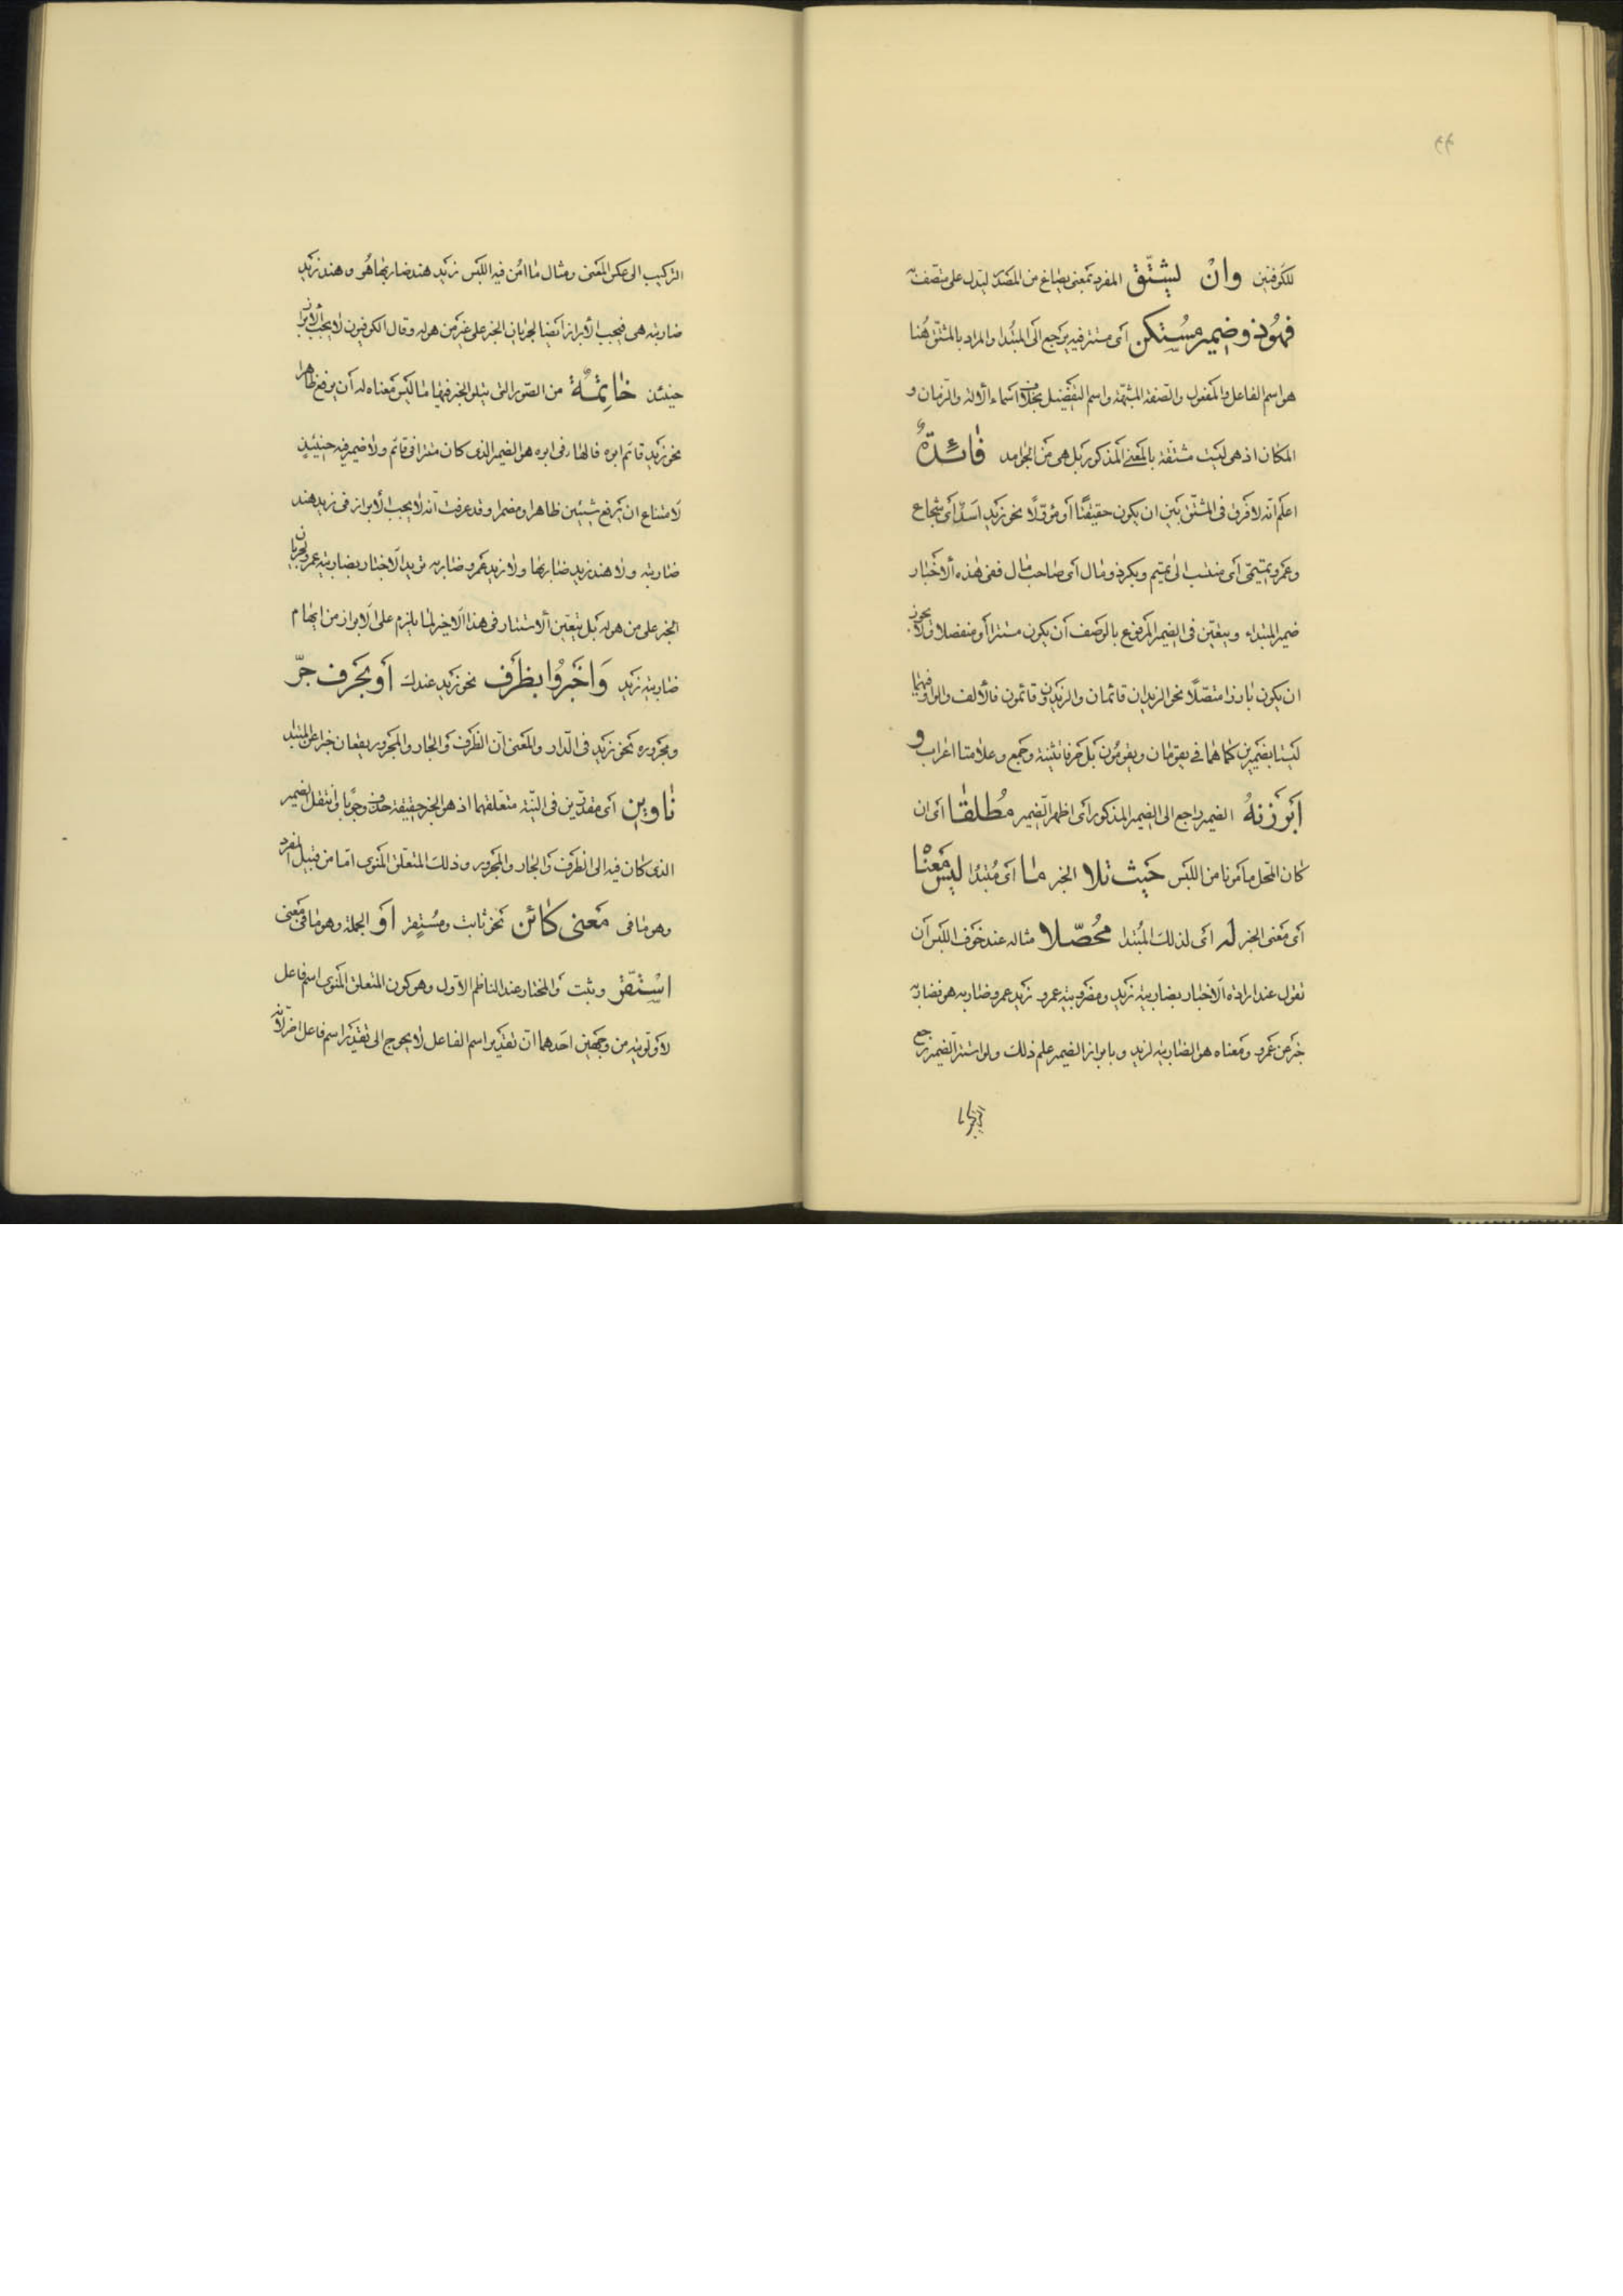 للكوفيين وان يشتق المفرد بمعنى يصاغ من المصدر ليدل على متصف به
فهو ذو ضمير مستكن أى مستتر فيه يرجع الى المبتدا والمراد بالمشتق هنا
هو اسم الفاعل والمفعول والصفة المشبهة واسم التفضيل بخلاف اسماء الآلة والزمان و
المكان اذ هى ليست مشتقة بالمعنى المذكور بل هى من الجوامد فائدة
اعلم انه لا فرق فى المشتق بين ان يكون حقيقتا أو مؤوّلا نحو زيد اسد أى شجاع
وعمرو تميمى أى منتسب الى تميم وبكر ذو مال أى صاحب مال ففى هذه الأخبار
ضمير المبتداء ويتعين فى الضمير المرفوع بالوصف أن يكون مستترا أو منفصلا ولا يجوز
ان يكون بارزا متصلا نحو الزيدان قائمان والزيدون قائمون فالألف والواو فيهما
ليستا بضميرين كما هما فى يقومان ويقومون بل حرفا تثنية وجمع وعلامتا اعراب و
أبرزنه الضمير راجع الى الضمير المذكور أى اظهر الضمير مطلقا أى ان
كان المحل مأمونا من اللبس حيث تلا الخبر ما أى مبتدا ليس معنا
أى معنى الخبر له أى لذلك المبتدا محصلا مثاله عند خوف اللبس أن
تقول عند ارادة الاخبار بضاربية زيد ومضروبية عمرو زيد عمرو ضاربه هو فضاربه
خبر عن عمرو ومعناه هو الضاربية لزيد وبابراز الضمير علم ذلك ولو استتر الضمير رجع
التركيب الى عكس المعنى ومثال ما امن فيه اللبس زيد هند ضاربها هو وهند زيد
ضاربته هى فيجب الأبراز ايضا لجريان الخبر على غير من هو له وقال الكوفيون لا يجب الأبراز
حينئذ خاتمة من الصور التى يتلو الخبر فيها ما ليس معناه له أن يرفع ظاهرا
نحو زيد قائم ابوه فالهاء فى ابوه هو الضمير الذى كان مستترا فى قائم ولا ضمير فيه حينئيذ
لامتناع ان يرفع شيئين ظاهرا ومضمرا وقد عرفت انه لا يجب الأبراز فى زيد هند
ضاربته ولا هند زيد ضاربها ولا زيد عمرو ضاربه تريد الاخبار بضاربية عمرو لجريان
الخبر على من هو له بل يتعين الاستتار فى هذا الاخير لما يلزم على الابراز من ايهام
ضاربية زيد وأخبروا بظرف نحو زيد عندك أو بحرف جرّ
ومجروره نحو زيد فى الدار والمعنى أن الظرف والجار والمجرور يقعان خبرا عن المبتدا
ناوين أى مقدرين فى النية متعلقهما اذ هو الخبر حقيقة حذف وجوبا وانتقل الضمير
الذى كان فيه الى الظرف والجار والمجرور وذلك المتعلق المنوى اما من قبيل المفرد
وهو ما فى معنى كائن نحو ثابت ومستقر أو الجملة وهو ما فى معنى
استقر وثبت والمختار عند الناظم الأول وهو كون المتعلق المنوى اسم فاعل
لأولويته من وجهين احدهما ان تقدير اسم الفاعل لا يحوج الى تقدير اسم فاعل اخر لأنه